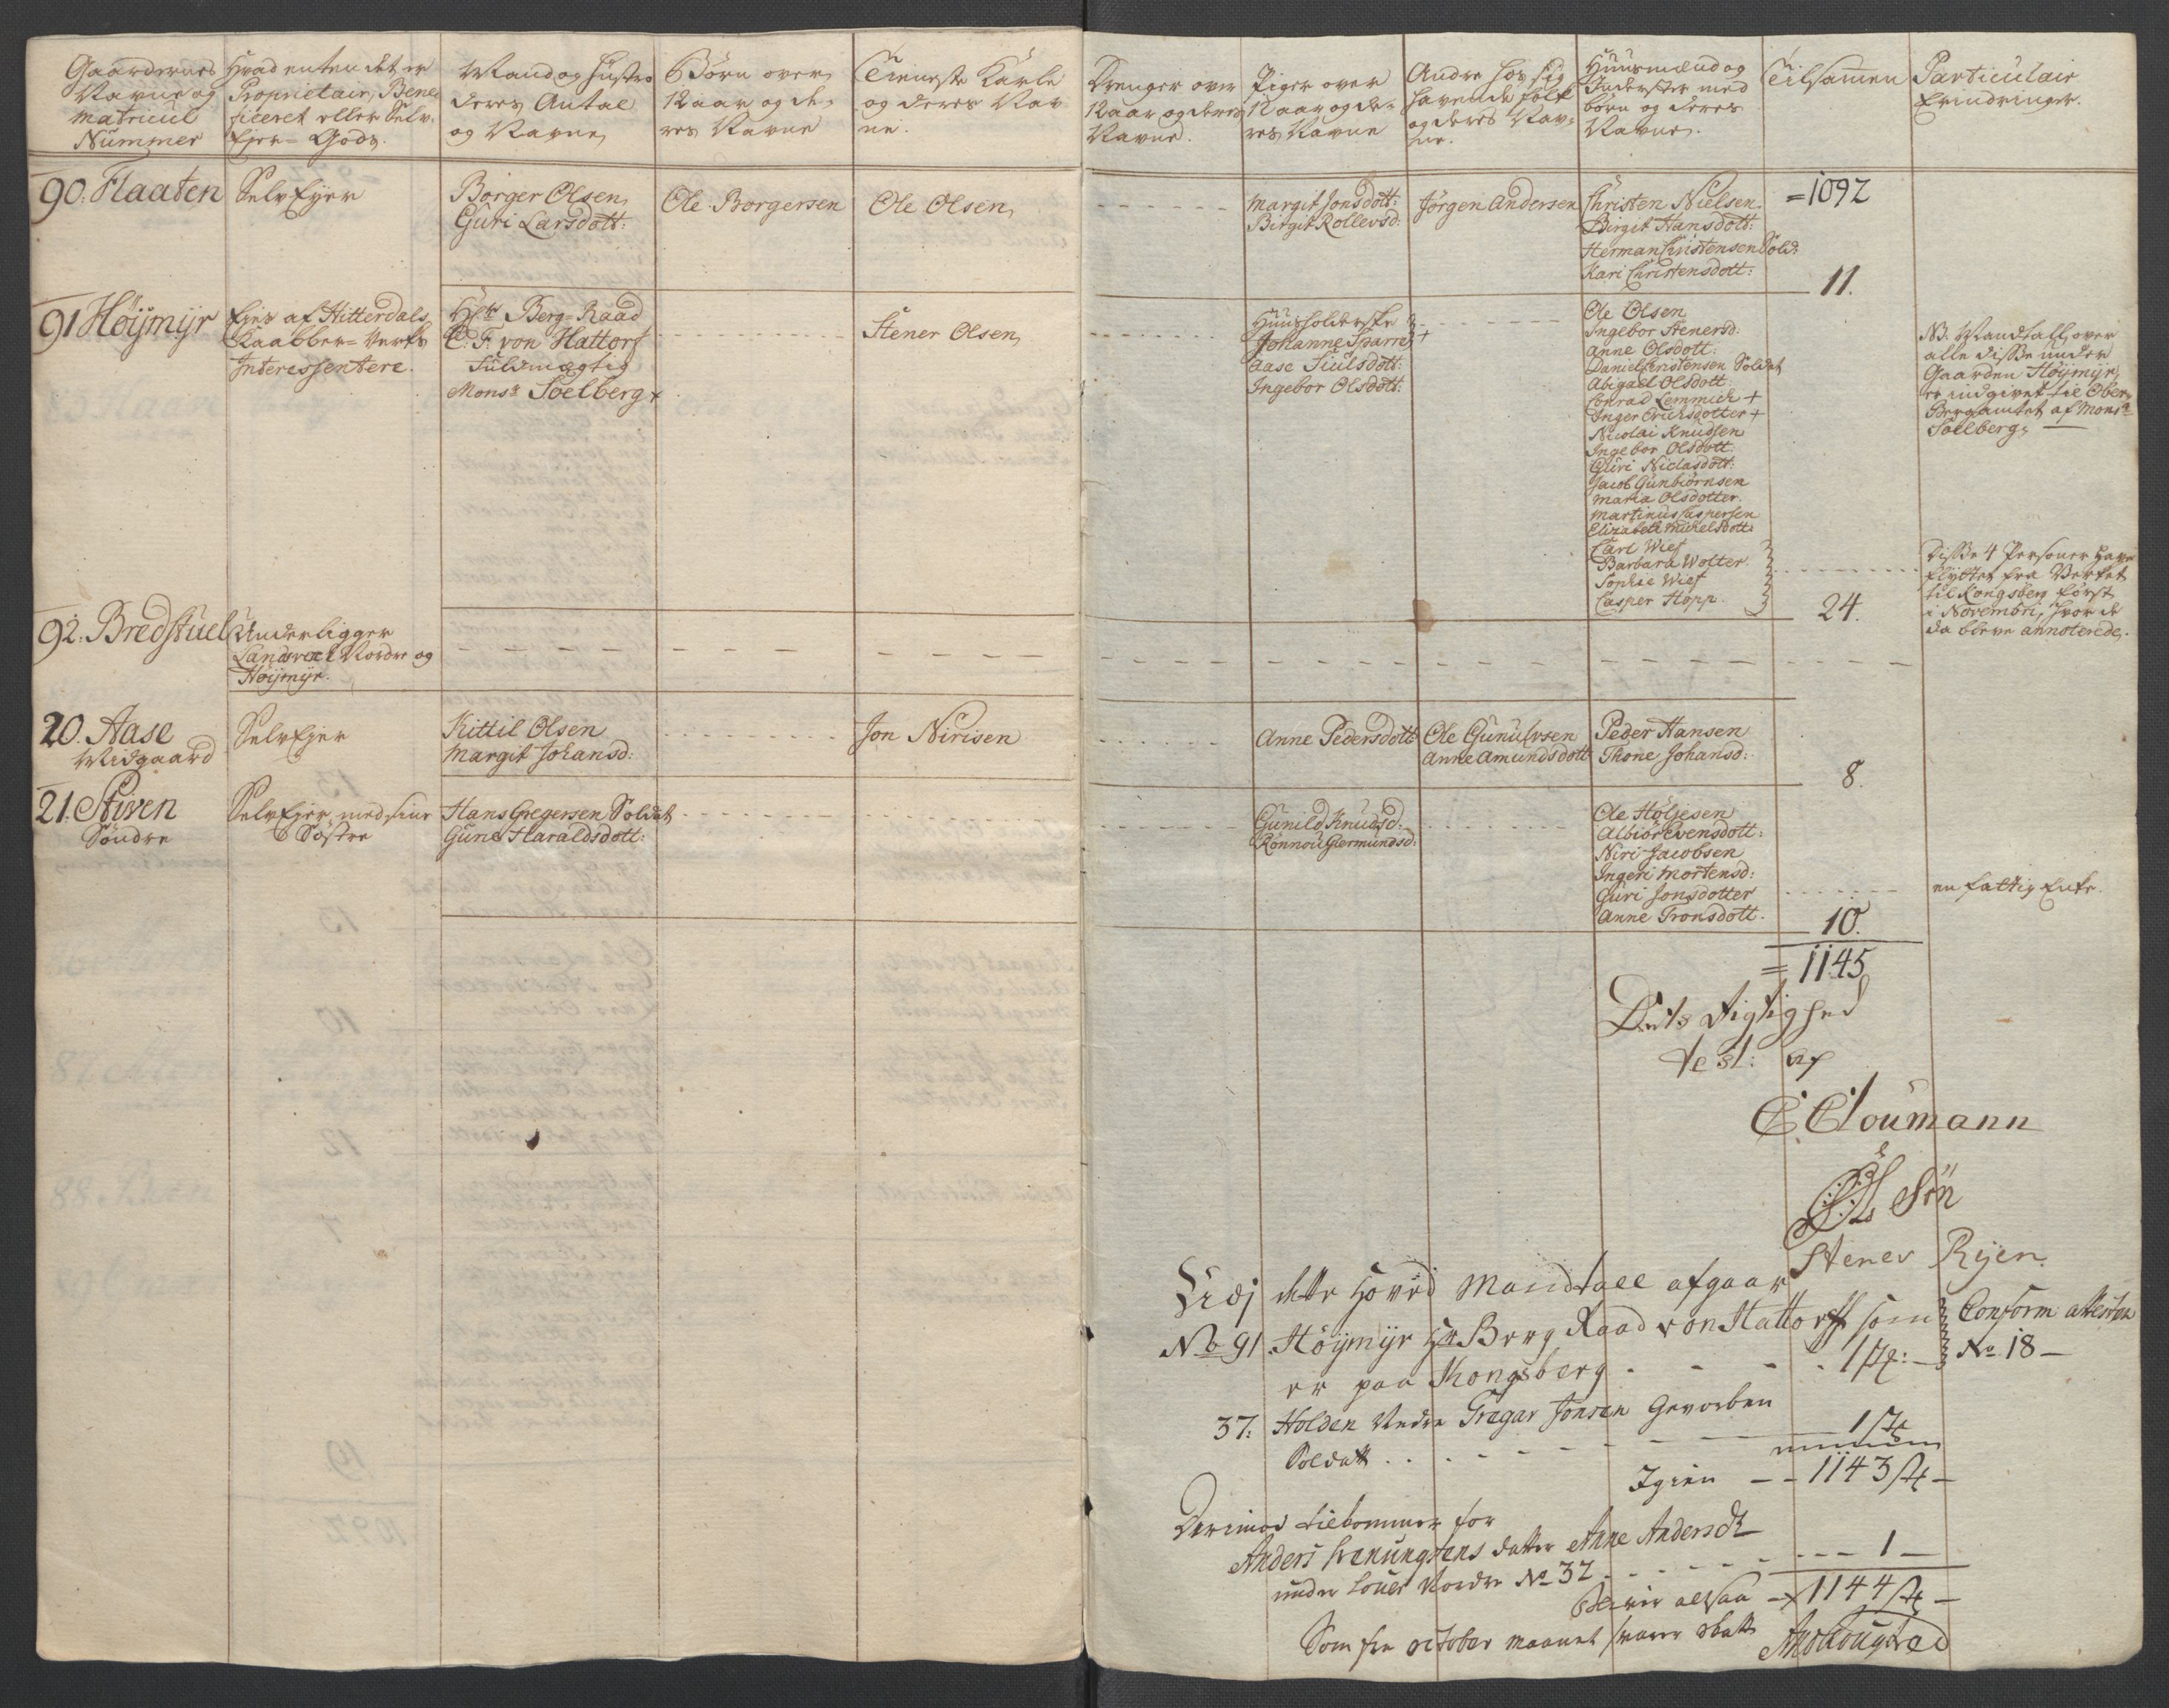 Gaardernes
Navne og
Matricul
Nummer
Hvad enten det er
Proprietair, Bene-
ficeret eller Selv-
Ejer= Gods.
Mand og Hustro
deres Antal
og Navne
Børn over
12 aar og de-
res Navne
Tieneste Karle
og deres Nav
ne.
Drenger over
12 aar og deres
Navne.
Piger over
12 aar og de-
res Navne
Andre hos sig
havende folk
og deres Nav-
ne.
Huusmænd og
Inderster med
børn og deres
Navne.
Tilsammen
Particulair
Erindringer.
90. Flaaten
SelvEjer
Borger Olsen
Guri Larsdott:
Ole Borgersen
Ole Olsen
Margit Jonsdott:
Birgit Rollevsd:
Jörgen Andersen
Christen Nielsen
Birgit Hansdott:
Herman Christensen Sold:
Kari Christensdott:
=1092
11.
91 Höijmijr
Ejes af Hitterdals
Kaabber= Verks
Interessentere.
Hr Berg=Raad
C. F. von Hattorf
Fuldmægtig
Monsr Soelberg +
Stener Olsen
Huusholderske
Johanne Sparre +
Aase Siulsdott:
Ingebor Olsdott:
Ole Olsen
Ingebor Stenersd:
Anne Olsdott:
Daniel Christensen Soldat
Abigael Olsdott
Conrad Lemmich +
Inger Erichsdotter +
Nicolai Knudsen
Ingebor Olsdott
Guri Niclasdott:
Jacob Gunbiörnsen
Maria Olsdotter.
Martinus Caspersen
Elizabeth Michelsdott:
Carl Wief
Barbara Wolter
Sophie Wief
Casper Hopp
24.
NB. Mandtall over
alle disse under
Gaarden Höymyr,
er indgivet til Ober-
Bergamtet af Monsr
Soelberg,
Disse 4 Personer have
flyttet fra Verket
til Kongsberg først
i Novembri, hvor de
da bleve annoterede.
92. Bredstuel
Underligger
Landsverk Nordre og
Höijmijr.
20. Aase
Midgaard
SelvEjer
Kittil Olsen
Margit Johansd:
Jon Nirisen
Anne Pedersdott
Ole Gunulvsen
Anne Amundsdott
Peder Hansen
Thone Johansd:
8.
21. Stiven
Söndre
SelvEjer med sine
6 Søstre
Hans Gregersen Soldat
Gune Haraldsdott:
Gunild Knudsd:
Rönnou Germundsd:
Ole Höljesen
Albiör Evensdott:
Niri Jacobsen
Ingeri Mortensd:
Guri Jonsdotter
Anne Tronsdott.
en fattig Enke.
10.
= 1145
Dets Rigtighed
test: af
C. Cloumann
S: Sön
Stener Rijen.
Udj dette Hoved Mandtall afgaar
No 91. Höijmijr Hr Berg Raad von Hattorff som
er paa Kongsberg - - - - 1 st: -
Conform attesten
No 18 -
37: Holden Nedre Tregar Jonsen Gevorben
Soldatt . . . - - - - - 1 st
Igien - - 1143 st -
Derimod tilkommer for
Anders Henungsens datter Anne Andersdt
under Louer Nordre No 32 . - - - - - - 1 -
Bliver altsaa - 1144 st -
Som fra October Maanet svarer skatt